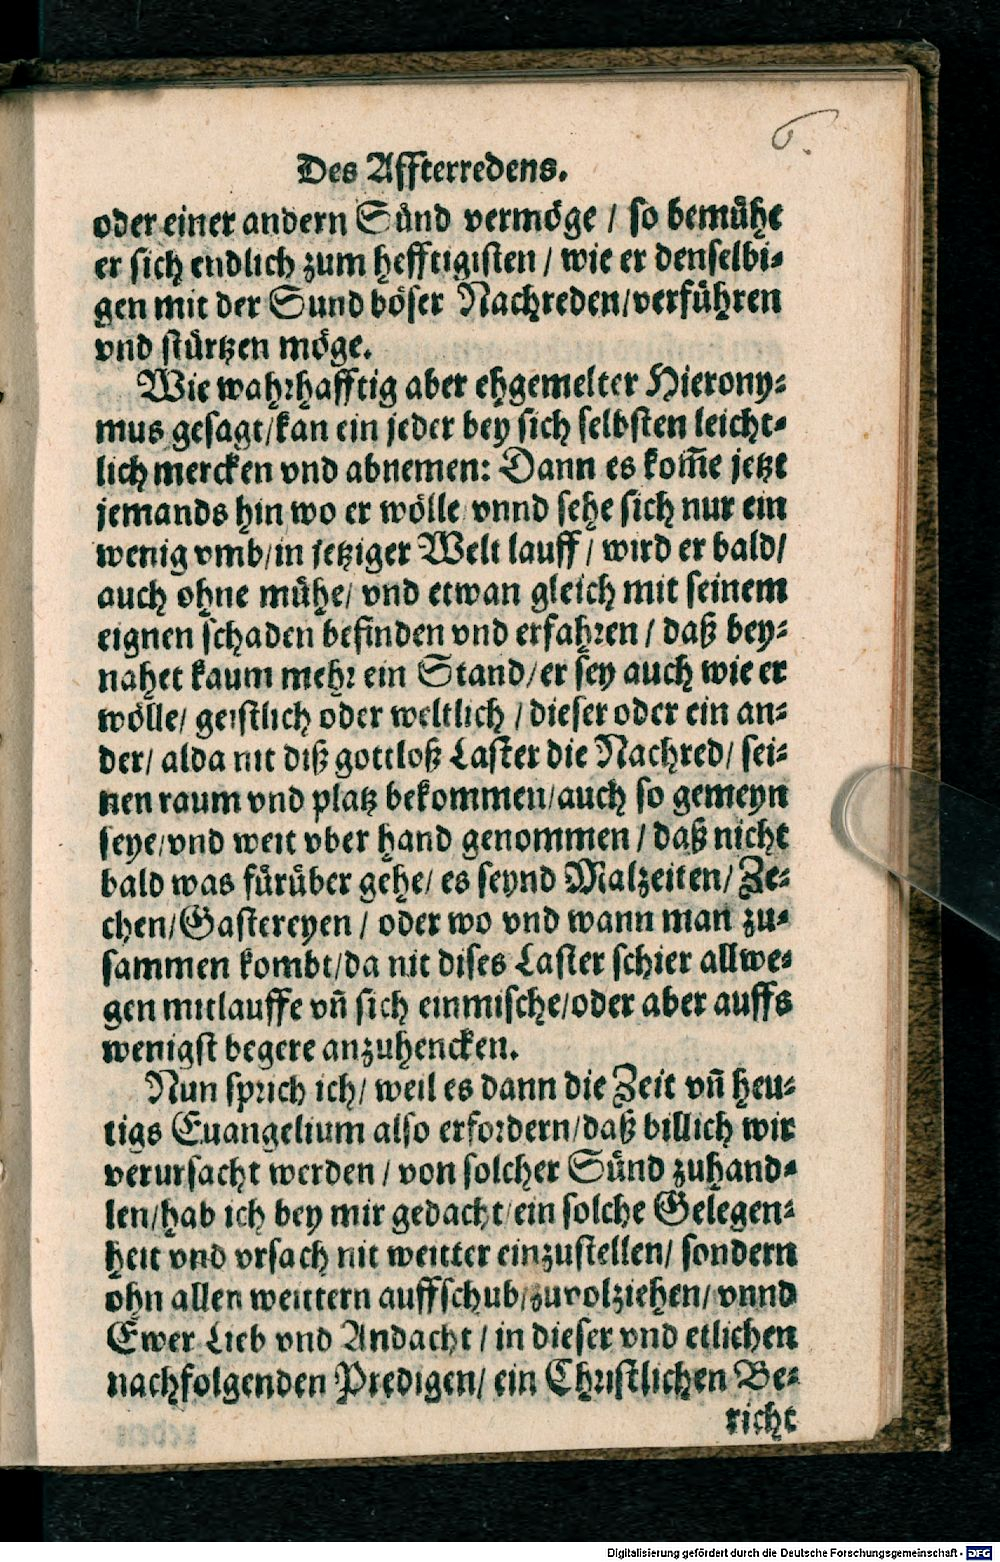 6.
Des Affterredens.
oder einer andern Sünd vermöge / so bemühe
er sich endlich zum hefftigisten / wie er denselbi-
gen mit der Sund böser Nachreden/verführen
vnd stürtzen möge.
Wie wahrhafftig aber ehgemelter Hierony-
mus gesagt/kan ein jeder bey sich selbsten leicht-
lich mercken vnd abnemen: Dann es kom̃e jetzt
jemands hin wo er wölle/ vnnd sehe sich nur ein
wenig vmb/in jetziger Welt lauff / wird er bald/
auch ohne mühe/ vnd etwan gleich mit seinem
eignen schaden befinden vnd erfahren / daß bey-
nahet kaum mehr ein Stand/er sey auch wie er
wölle/ geistlich oder weltlich / dieser oder ein an-
der/ alda nit diß gottloß Laster die Nachred/ sei-
nen raum vnd platz bekommen/auch so gemeyn
seye/vnd weit vber hand genommen / daß nicht
bald was fürüber gehe/ es seynd Malzeiten/ Ze-
chen/Gastereyen / oder wo vnd wann man zu-
sammen kombt/da nit dises Laster schier allwe-
gen mitlauffe vñ sich einmische/oder aber auffs
wenigst begere anzuhencken.
Nun sprich ich/ weil es dann die Zeit vñ heu-
tigs Euangelium also erfordern/daß billich wir
verursacht werden / von solcher Sünd zuhand-
len/hab ich bey mir gedacht/ein solche Gelegen-
heit vnd vrsach nit weitter einzustellen/ sondern
ohn allen weittern auffschub/zuvolziehen/ vnnd
Ewer Lieb vnd Andacht / in dieser vnd etlichen
nachfolgenden Predigen/ ein Christlichen Be-
richt
Digitalisierung gefördert durch die Deutsche Forschungsgemeinschaft - DFG